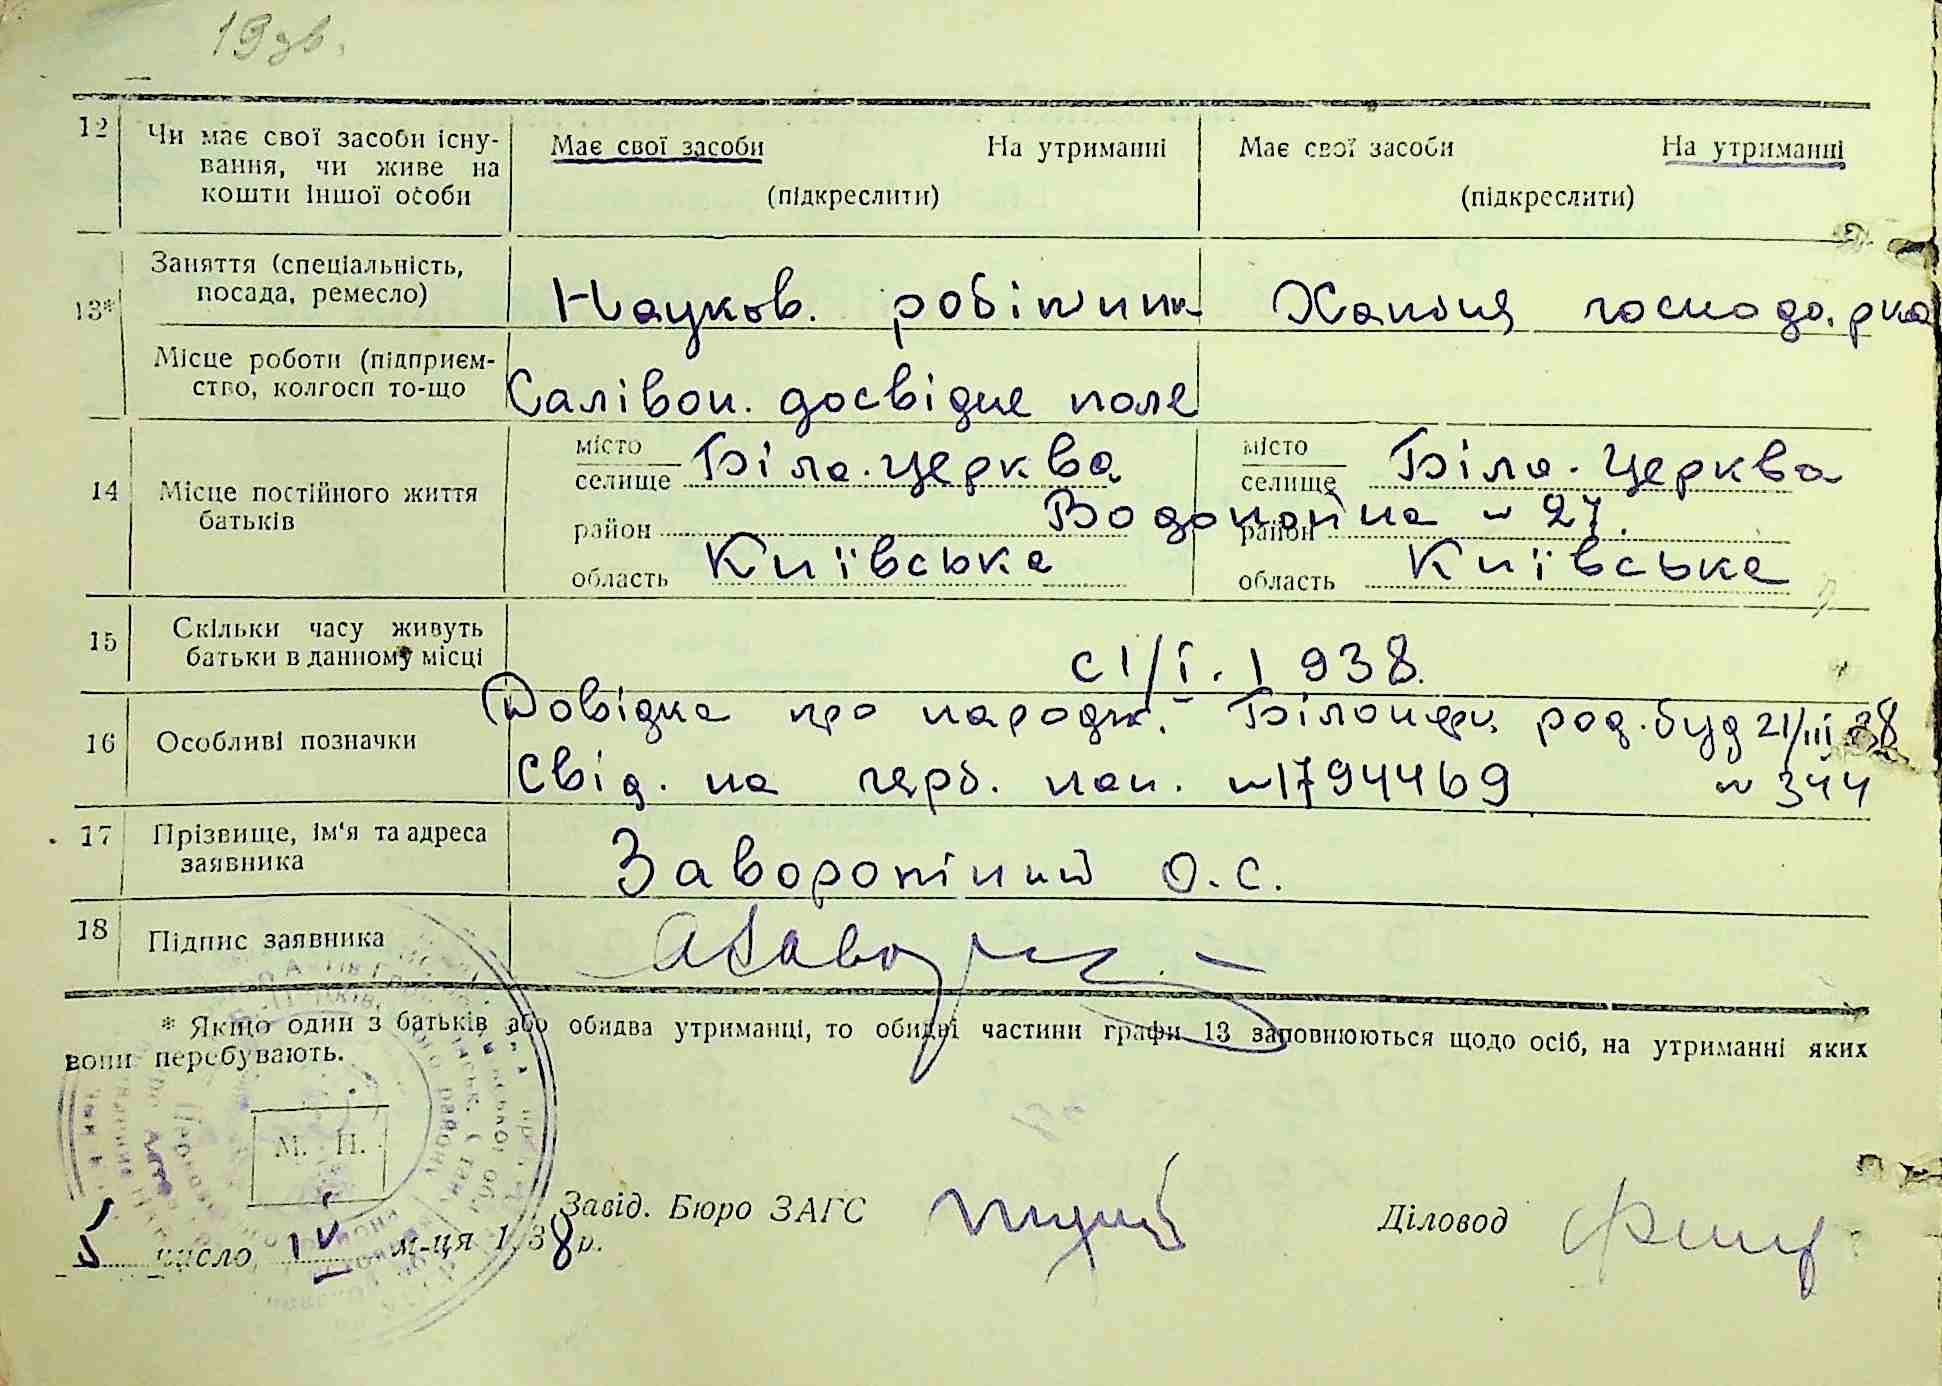 19 зв.
12 Чи має свої засоби існу-
вання, чи живе на
кошти іншої особи
Має свої засоби На утриманні
(підкреслити)
Має свої засоби На утриманні
(підкреслити)
13* Заняття (спеціальність,
посада, ремесло)
Науков. робітник
Хатня господарка
Місце роботи (підприєм-
ство, колгосп то-що
Салівон. досвідне поле
14 Місце постійного життя
батьків
місто
селище Біла-церква
район
область Київська
місто
селище Біла-Церква
район
область Київська
Водопойна № 27.
15 Скільки часу живуть
батьки в данному місці
с 1/I. 1938.
16 Особливі позначки
Довідка про народж. Білоцерк. род. буд 21/III 38
Свід. на герб. пап. №1794469 № 344
17 Прізвище, ім'я та адреса
заявника
Заворотній О.С.
18 Підпис заявника
* Якщо один з батьків або обидва утриманці, то обидві частини графи 13 заповнюються щодо осіб, на утриманні яких
вони перебувають.
М. П.
Завід. Бюро ЗАГС
Діловод
5 число, IV м-ця 1938р.